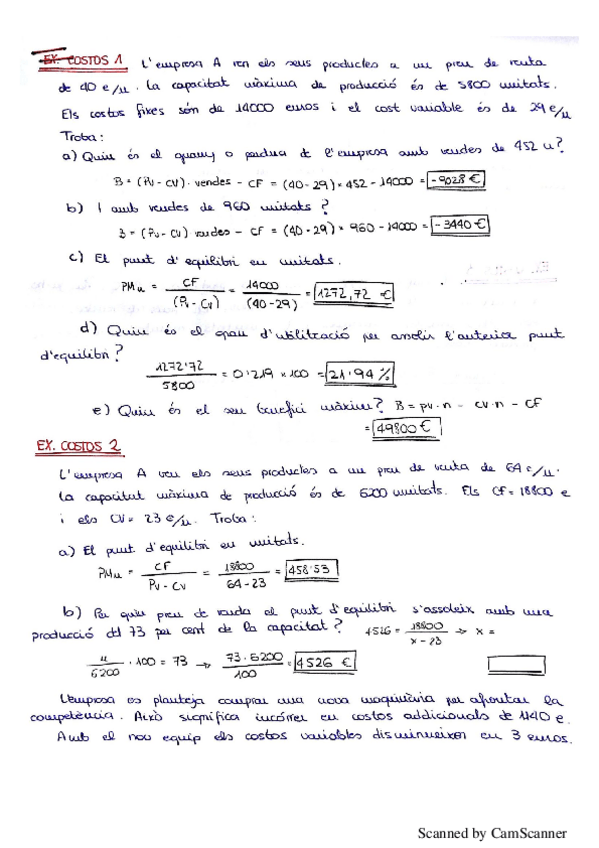 EX. COSTOS 1 L'empresa A ven els seus productes a un preu de venta
de 40 e/u. La capacitat màxima de producció és de 5800 unitats.
Els costos fixes són de 14000 euros i el cost variable és de 29 e/u
Troba:
a) Quin és el guany o perdua de l'empresa amb vendes de 452 u?
B = (Pv - CV) · vendes - CF = (40-29) × 452 - 14000 = -9028 €
b) I amb vendes de 960 unitats?
B = (Pv - CV) vendes - CF = (40-29) × 960 - 14000 = -3440 €
c) El punt d'equilibri en unitats.
PMu = CF / (Pv - Cv) = 14000 / (40-29) = 1272,72 €
d) Quin és el grau d'utilització per assolir l'anterior punt
d'equilibri?
1272'72 / 5800 = 0'219 × 100 = 21'94 %
e) Quin és el seu benefici màxim? B = pv·n - cv·n - CF
= 49800 €
EX. COSTOS 2
L'empresa A ven els seus productes a un preu de venta de 64 e/u.
La capacitat màxima de producció és de 6200 unitats. Els CF = 18800 e
i els CV = 23 e/u. Troba:
a) El punt d'equilibri en unitats.
PMu = CF / Pv - Cv = 18800 / 64-23 = 458'53
b) Per quin preu de venda el punt d'equilibri s'assoleix amb una
producció del 73 per cent de la capacitat? 4526 = 18800 / x-23 → x =
u / 6200 · 100 = 73 → 73·6200 / 100 = 4526 €
L'empresa es planteja comprar una nova maquinària per afrontar la
competència. Això significa incórrer en costos addicionals de 1140 e.
Amb el nou equip els costos variables disminueixen en 3 euros.
Scanned by CamScanner